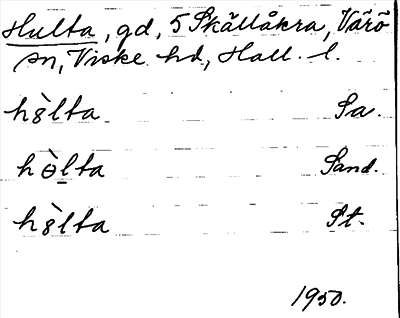 Hulta, gd, 5 Skällåkra, Värö
sn, Viske hd, Hall. l.
hо̀lta Sa.
hɵ̀lta Sand.
St.
1950.